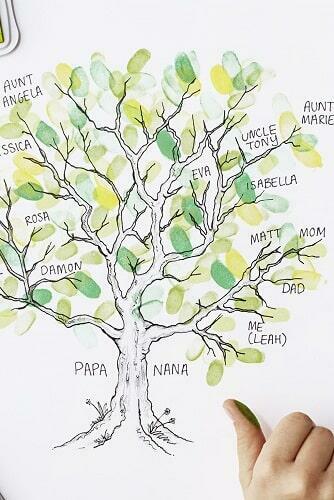 AUNT
ANGELA
AUNT
MARIE
UNCLE
TONY
EVA
ISABELLA
ROSA
MATT
MOM
DAMON
DAD
ME
(LEAH)
PAPA
NANA